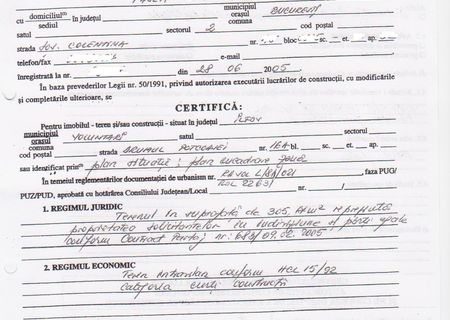 municipiul
orașul BUCUREȘTI
comuna
cu domiciliul în județul
sediul
satul sectorul 2 cod poștal
strada Șos. COLENTINA nr. bloc sc. et. ap.
telefon/fax e-mail
înregistrată la nr. din 28 06 2005,
În baza prevederilor Legii nr. 50/1991, privind autorizarea executării lucrărilor de construcții, cu modificările
și completările ulterioare, se
CERTIFICĂ:
Pentru imobilul - teren și/sau construcții - situat în județul ILFOV
municipiul
orașul VOLUNTARI satul sectorul
comuna
cod poștal strada DRUMUL POTCOAVEI nr. 16A bl. sc. et. ap.
sau identificat prin plan situație; plan încadrare zonă
În temeiul reglementărilor documentației de urbanism nr. faza PUG/
PUZ/PUD, aprobată cu hotărârea Consiliului Județean/Local nr. /
1. REGIMUL JURIDIC
Terenul în suprafață de 305, mp
proprietatea solicitantelor în indiviziune părți egale
conform Contract Partaj nr. 683/09.02.2005
2. REGIMUL ECONOMIC
Teren intravilan conform HCL 15/92
Categoria curți construcții